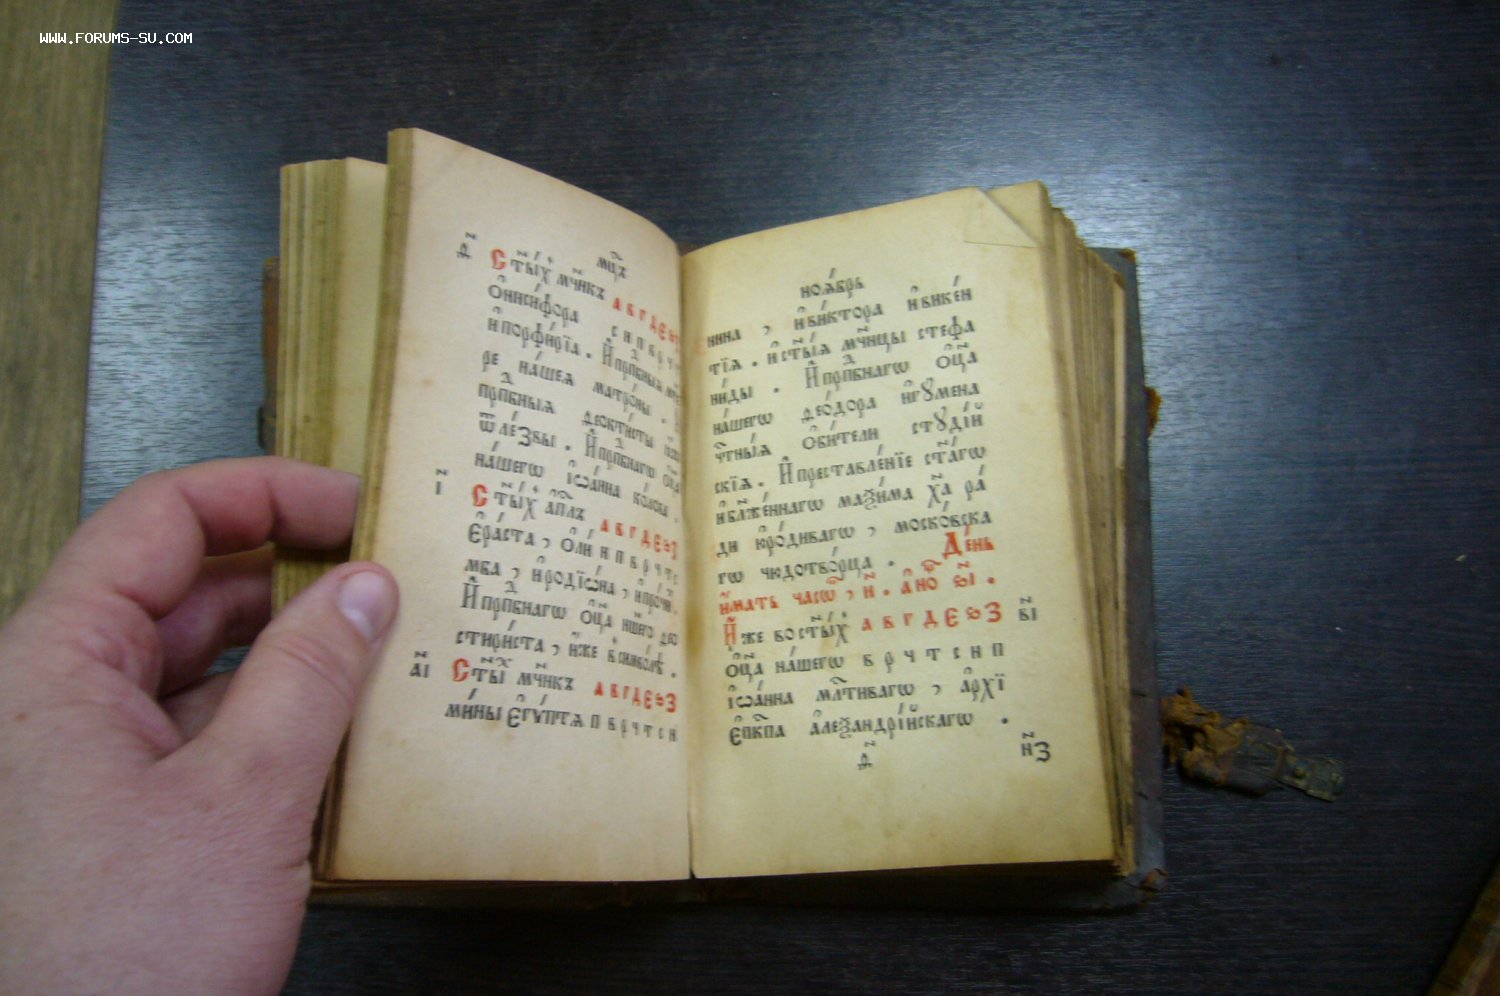 WWW.FORUMS-SU.COM
мцⷭ҇ъ
д҃ Ст҃ы́хъ мч҃нкъ а в г д є ѕ
Ѻ҆ниси́фора с н п в р ч
и҆порфи́рїа . И҆прпⷣбныѧ
ре на́шеѧ матро́ны .
прпⷣбныѧ ѳеокти́сты
ѿле́звы . И҆прпⷣбнагѡ ѻ҆ц҃а
на́шегѡ і҆ѡа́нна коло́ва .
і҃ Ст҃ы́хъ а҆пⷭ҇лъ а в г д є ѕ з
Є҆ра́ста , ѻ҆ли́ н п в р ч т с
мва , и҆родїѡ́на , и҆про́чи .
И҆прпⷣбнагѡ ѻ҆ц҃а н҃шего ѳео
стири́ста , и҆́же всимво́лѣ .
а҃і Ст҃ы́ мч҃нкъ а в г д є ѕ з
ми́ны є҆гѵ́птѧ п в р ч т с н
ноѧ́брь
нина , и҆ви́ктора и҆вике́н
тїѧ . и҆ст҃ы́ѧ мч҃ницы стефа
ни́ды . И҆прпⷣбнагѡ ѻ҆ц҃а
на́шегѡ ѳео́дора игꙋ́мена
чтⷭ҇ны́ѧ ѻ҆би́тели стꙋді́й
скїѧ . И҆преставле́нїе ст҃а́гѡ
и҆бл҃же́ннагѡ маѯи́ма хⷭ҇а ра
ди ю҆ро́диваго , моско́вска
гѡ чюдотво́рца . Де́нь
и҆́мать часѡ́въ , и҃ . а҆но́щь ѕ҃і .
И҆́же во ст҃ы́хъ а в г д є ѕ з в҃і
ѻ҆ц҃а на́шегѡ в р ч т с н п
і҆ѡа́нна млⷭ҇тивагѡ , а҆рхї
є҆пкⷭ҇па а҆леѯандрі́йскагѡ .
д҃ н҃з